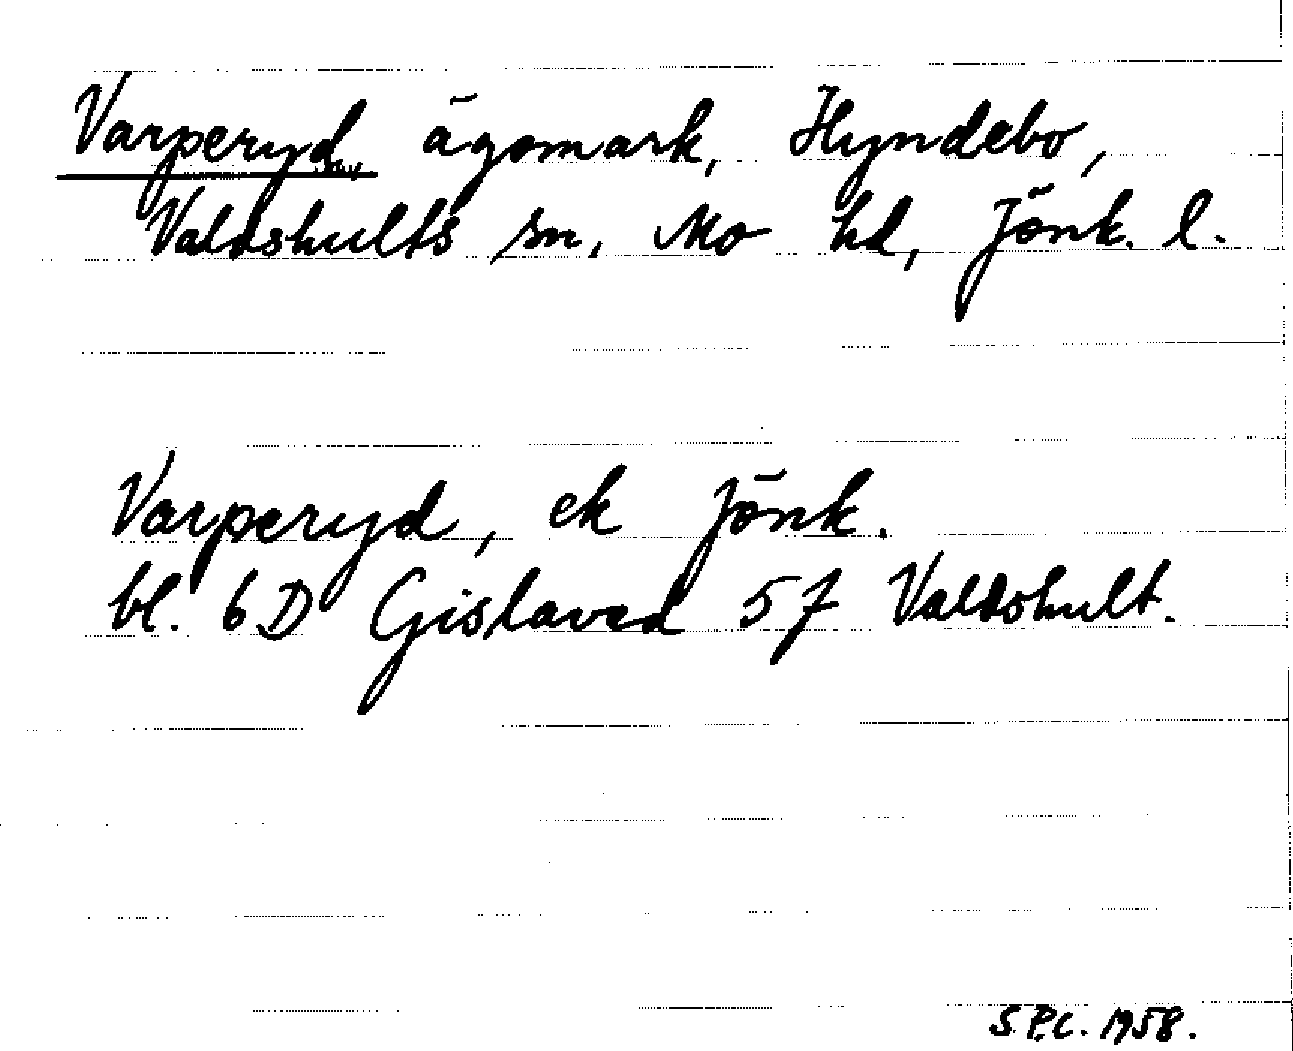 Varperyd ägomark, Hyndebo,
Valdshults sn, Mo hd, Jönk. l.
Varperyd, ek Jönk.
bl. 6D Gislaved 5f Valdshult.
S.P.C. 1958.